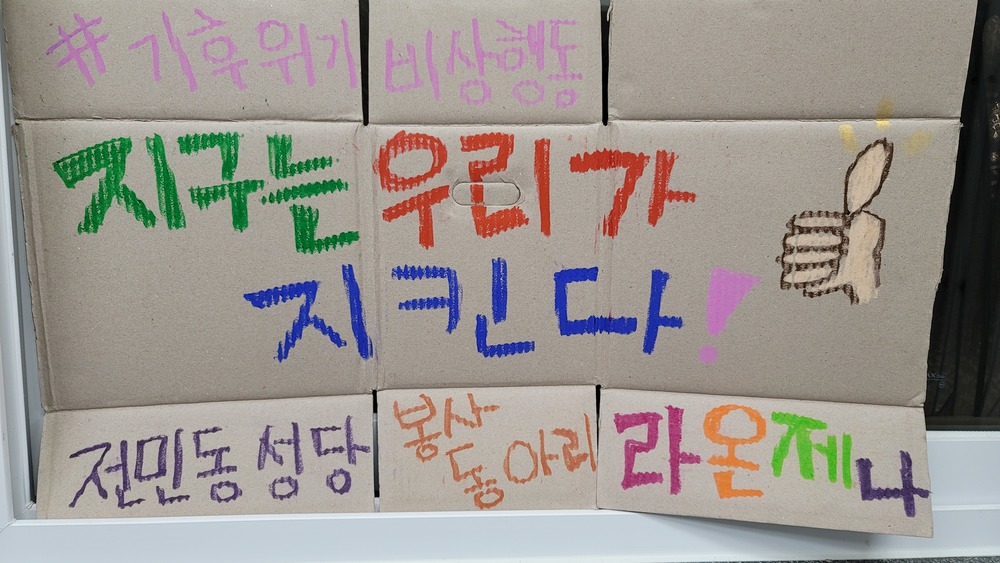 #기후위기 비상행동
지구는 우리가
지킨다!
전민동성당
봉사
동아리
라온제나